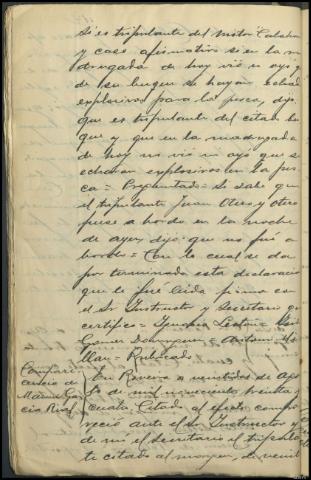 si es tripulante del motor
y caso afirmativo si en la ma
drugada de hoy vió u oyó q
de su buque se hayan echado
explosivos para la pesca, dijo
que es tripulante del citado bu
que y que en la madrugada
de hoy ni vió ni oyó que se
echaran explosivos en la pes
ca = Preguntado = Si sabe que
el tripulante Juan Otero y otro
fuese a bordo en la noche
de ayer, dijo: que no fué a
bordo = Con lo cual se da
por terminada esta declaración
que le fué leida firma con
el Sr Instructor y Secretario que
certifico =
Gomez =
= Rubricado
Compare
cencia de
Manuel Gar
cia
En Riveira a veintidos de Ago
to de mil novecientos treinta y
cuatro, Citado al efecto compa
reció ante el Sr Instructor y
de mi el Secretario el tripulan
te citado al margen, de veinti